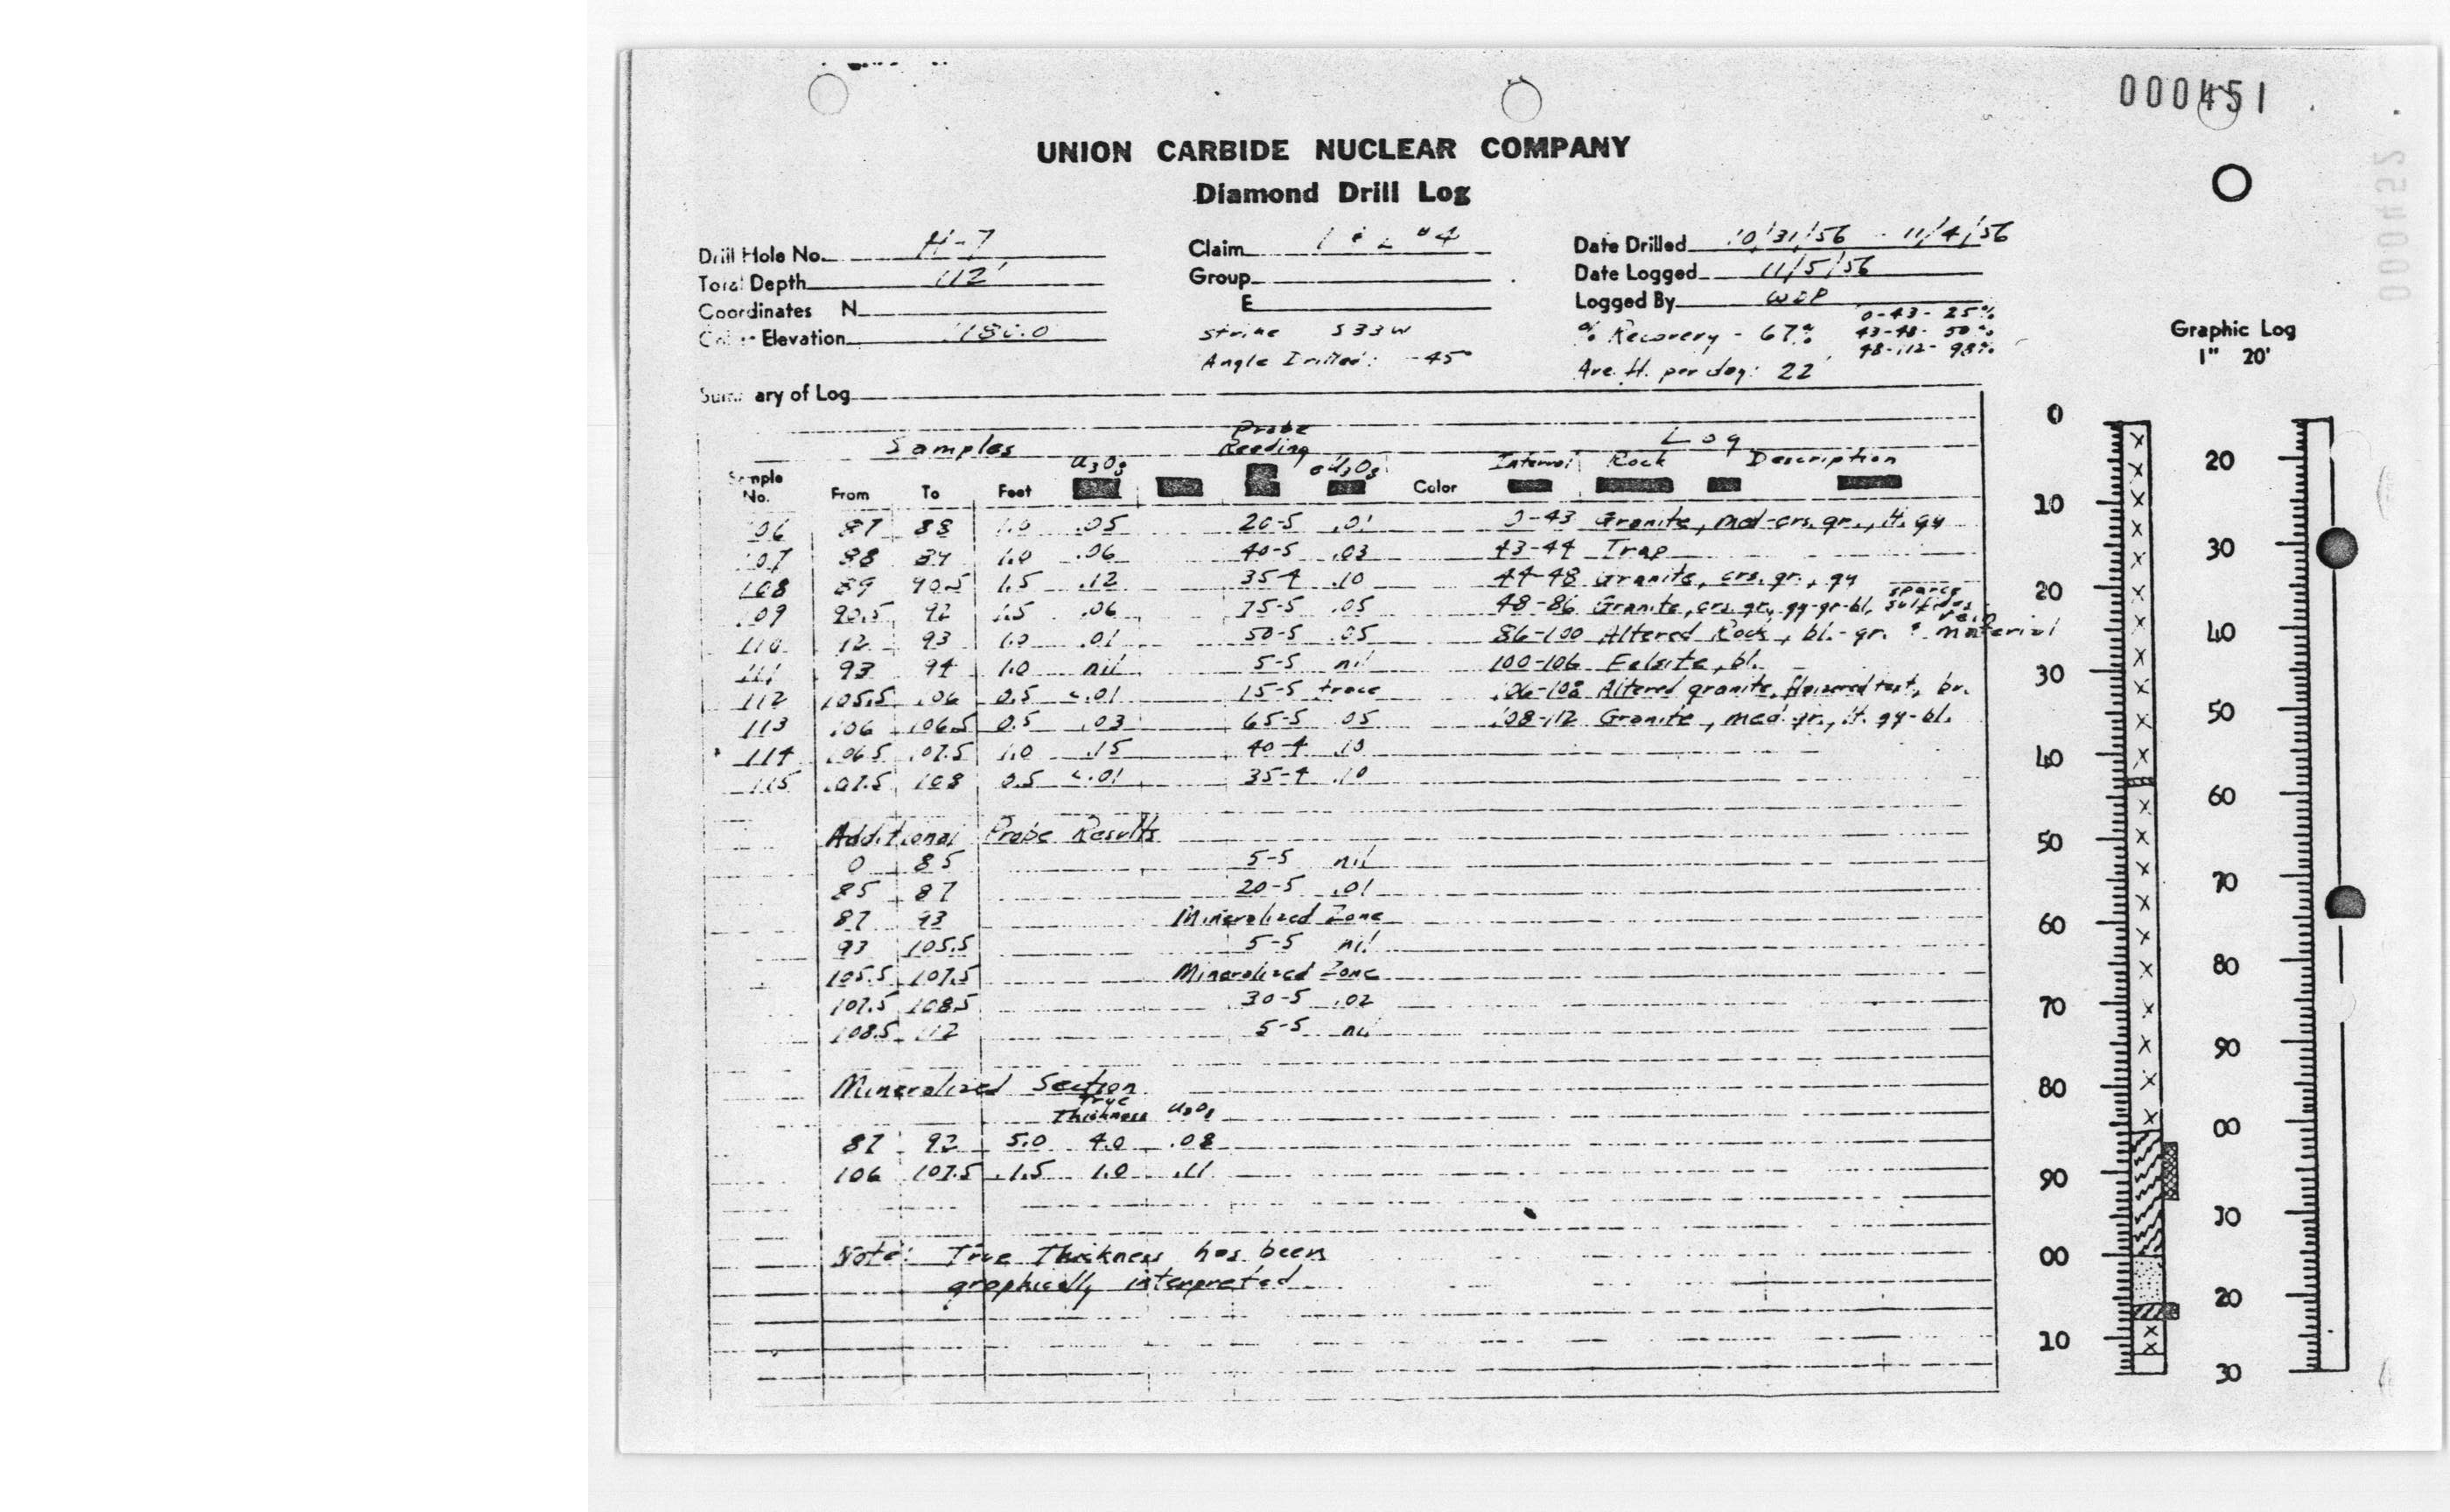 000451
000452
UNION CARBIDE NUCLEAR COMPANY
Diamond Drill Log
Drill Hole No. H-7 Claim Date Drilled 10/31/56 - 11/4/56
Total Depth 112' Group Date Logged 11/5/56
Coordinates N E Logged By
Elevation Strike S 33 W % Recovery - 67% 0-43- 25% 43-48- 50% 48-112- 98%
Angle Drilled: -45° Ave. ft. per day: 22
Graphic Log
1" 20'
ary of Log
Samples Probe Reading Log
Sample No. From To Feet U3O8 eU3O8 Color Interval Rock Description
06 87 88 1.0 .05 20-5 .01 0-43 Granite, med-crs. gr., lt. gy
07 88 89 1.0 .06 40-5 .03 43-44 Trap
108 89 90.5 1.5 .12 35-4 .10 44-48 Granite, crs. gr., gy
09 90.5 92 1.5 .06 75-5 .05 48-86 Granite, crs. gr., gy-gr-bl, sparce sulfides
110 92 93 1.0 .01 50-5 .05 86-100 Altered Rock, bl.-gr. & vein material
111 93 94 1.0 nil 5-5 nil 100-106 Felsite, bl.
112 105.5 106 0.5 <.01 15-5 trace 106-108 Altered granite, text, br.
113 106 106.5 0.5 .03 65-5 .05 108-112 Granite, med. gr., lt. gy-bl.
114 106.5 107.5 1.0 .15 40-4 .10
115 107.5 108 0.5 <.01 35-4 .10
Additional Probe Results
0 85 5-5 nil
85 87 20-5 .01
87 93 Mineralized Zone
93 105.5 5-5 nil
105.5 107.5 Mineralized Zone
107.5 108.5 30-5 .02
108.5 112 5-5 nil
Mineralized Section
True Thickness U3O8
87 92 5.0 4.0 .08
106 107.5 1.5 1.0 .11
Note: True Thickness has been
graphically interpreted
0
10
20
30
40
50
60
70
80
90
00
10
20
30
40
50
60
70
80
90
00
10
20
30